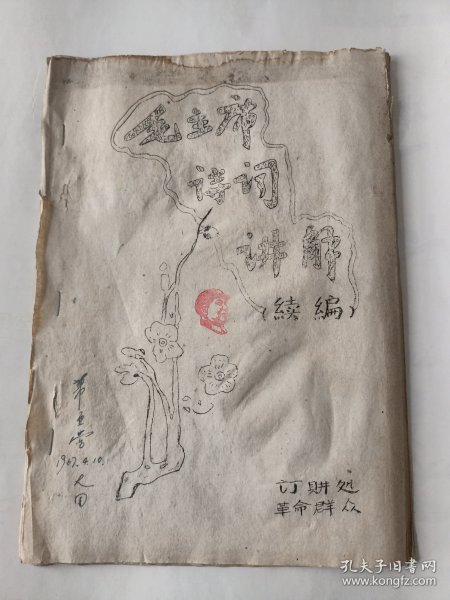 毛主席
诗词
讲解
(續編)
1967.4.10.
订购处
革命群众
孔夫子旧书网
www.kongfz.com